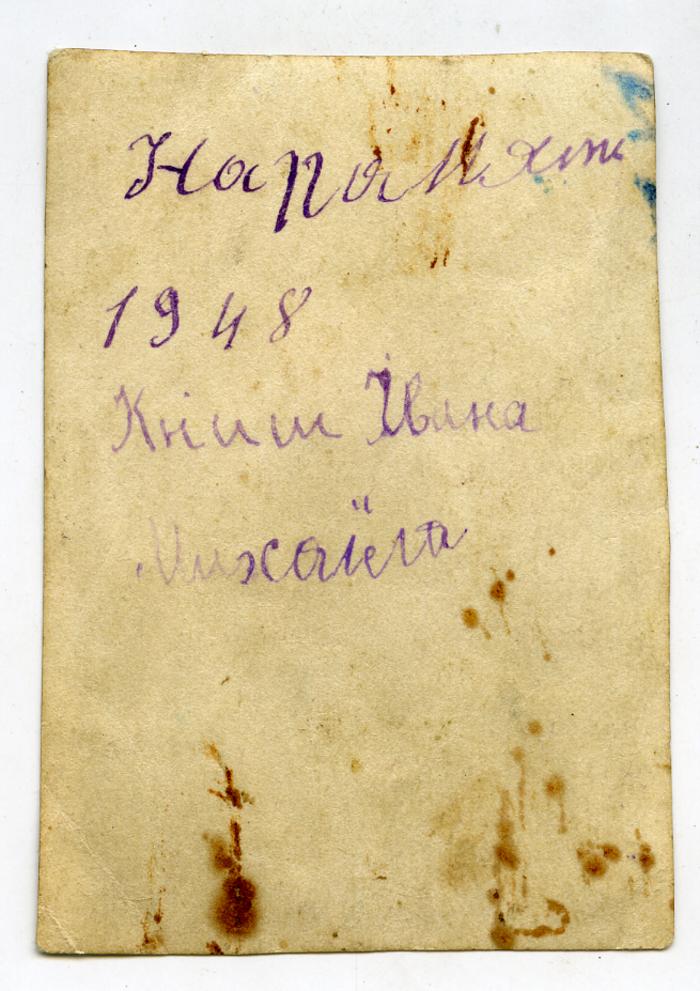 Напамять
1948
Книш Івана
Михайла